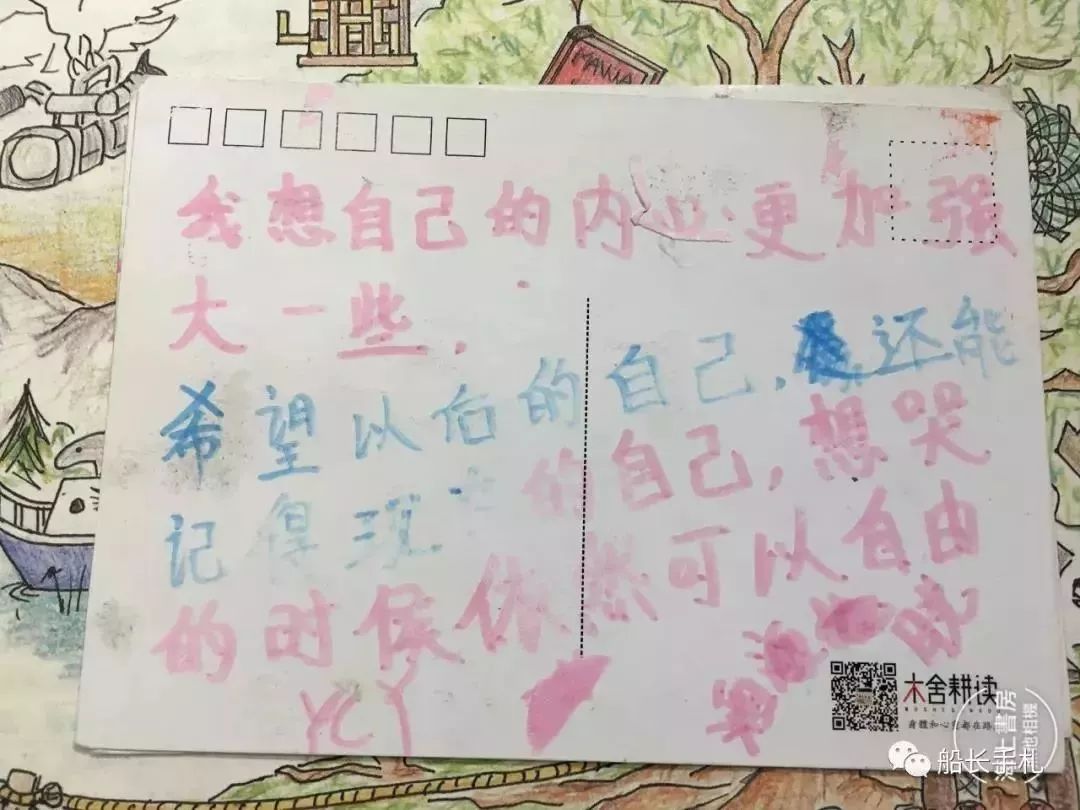 我想自己的内心更加强
大一些，
希望以后的自己，还能
记得现的自己，想哭
的时候依然可以自由
YCY
木舍耕读
身體和心都在路
上書房
船长手札